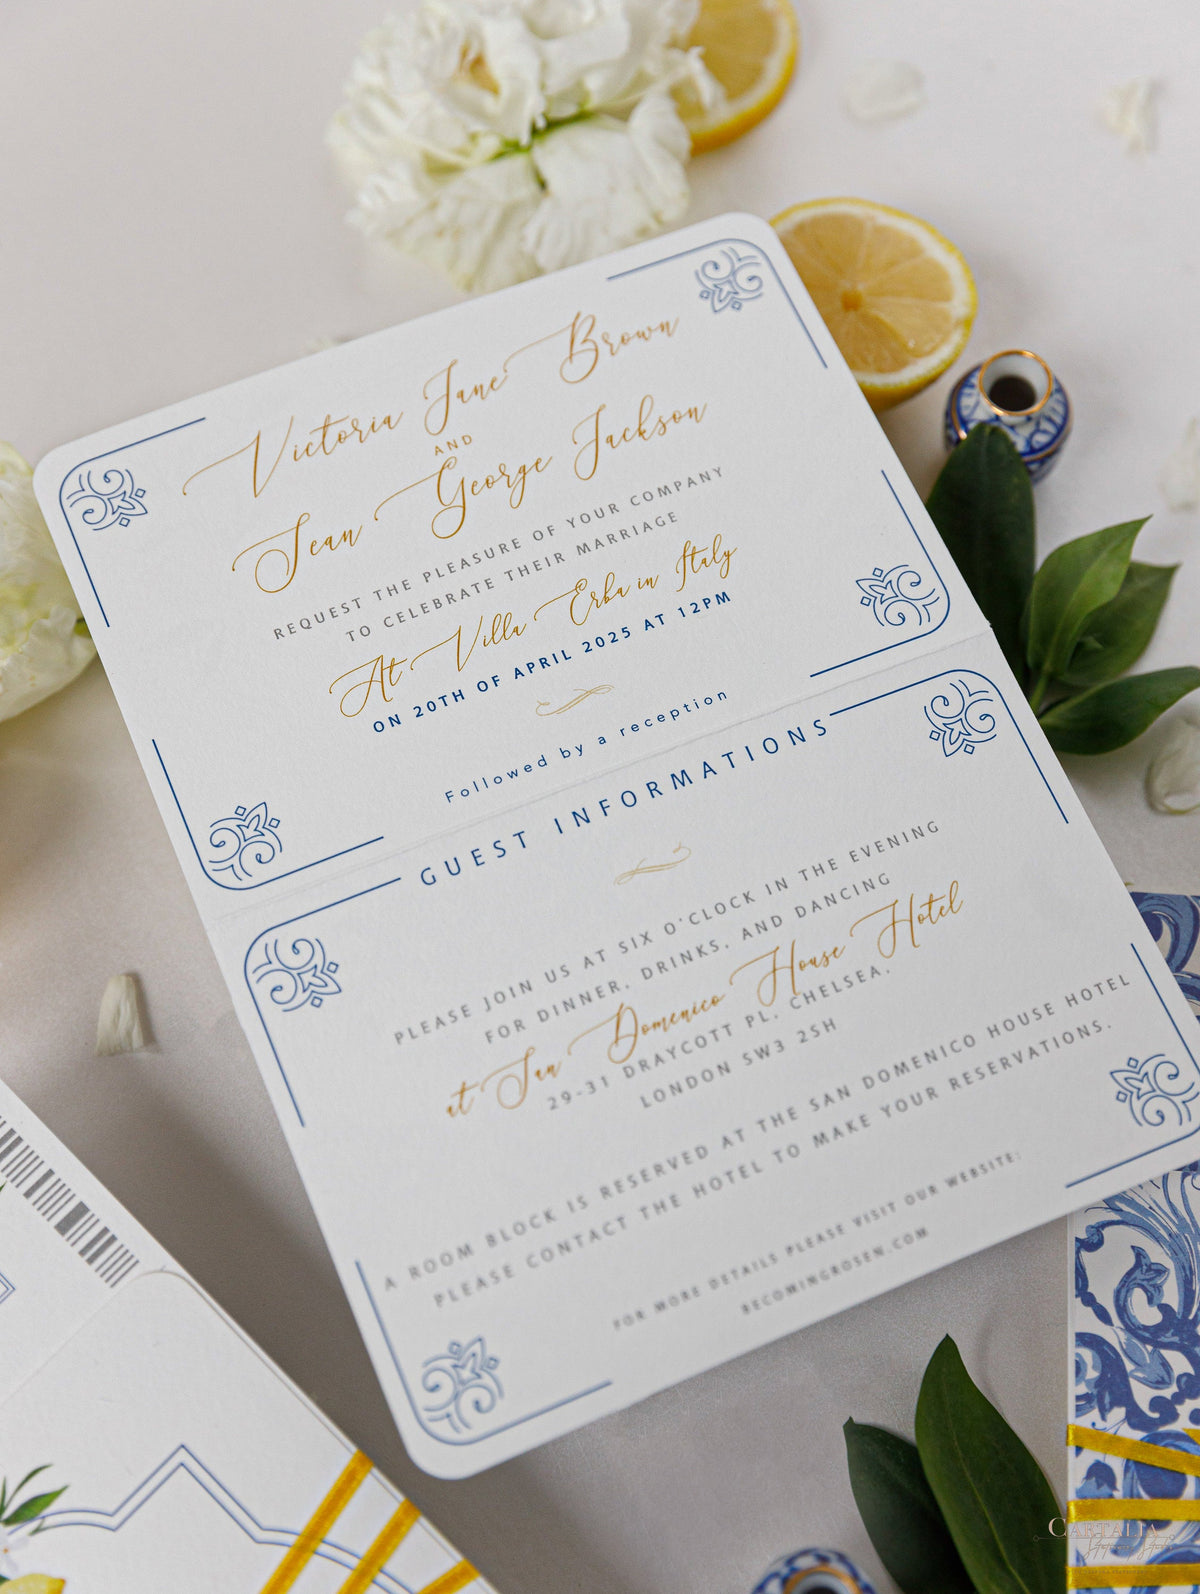 Victoria Jane Brown
AND
Sean George Jackson
REQUEST THE PLEASURE OF YOUR COMPANY
TO CELEBRATE THEIR MARRIAGE
At Villa Erba in Italy
ON 20TH OF APRIL 2025 AT 12PM
Followed by a reception
GUEST INFORMATIONS
PLEASE JOIN US AT SIX O'CLOCK IN THE EVENING
FOR DINNER, DRINKS, AND DANCING
at San Domenico House Hotel
29-31 DRAYCOTT PL, CHELSEA,
LONDON SW3 2SH
A ROOM BLOCK IS RESERVED AT THE SAN DOMENICO HOUSE HOTEL
PLEASE CONTACT THE HOTEL TO MAKE YOUR RESERVATIONS.
FOR MORE DETAILS PLEASE VISIT OUR WEBSITE:
BECOMINGROSEN.COM
CARTALIA